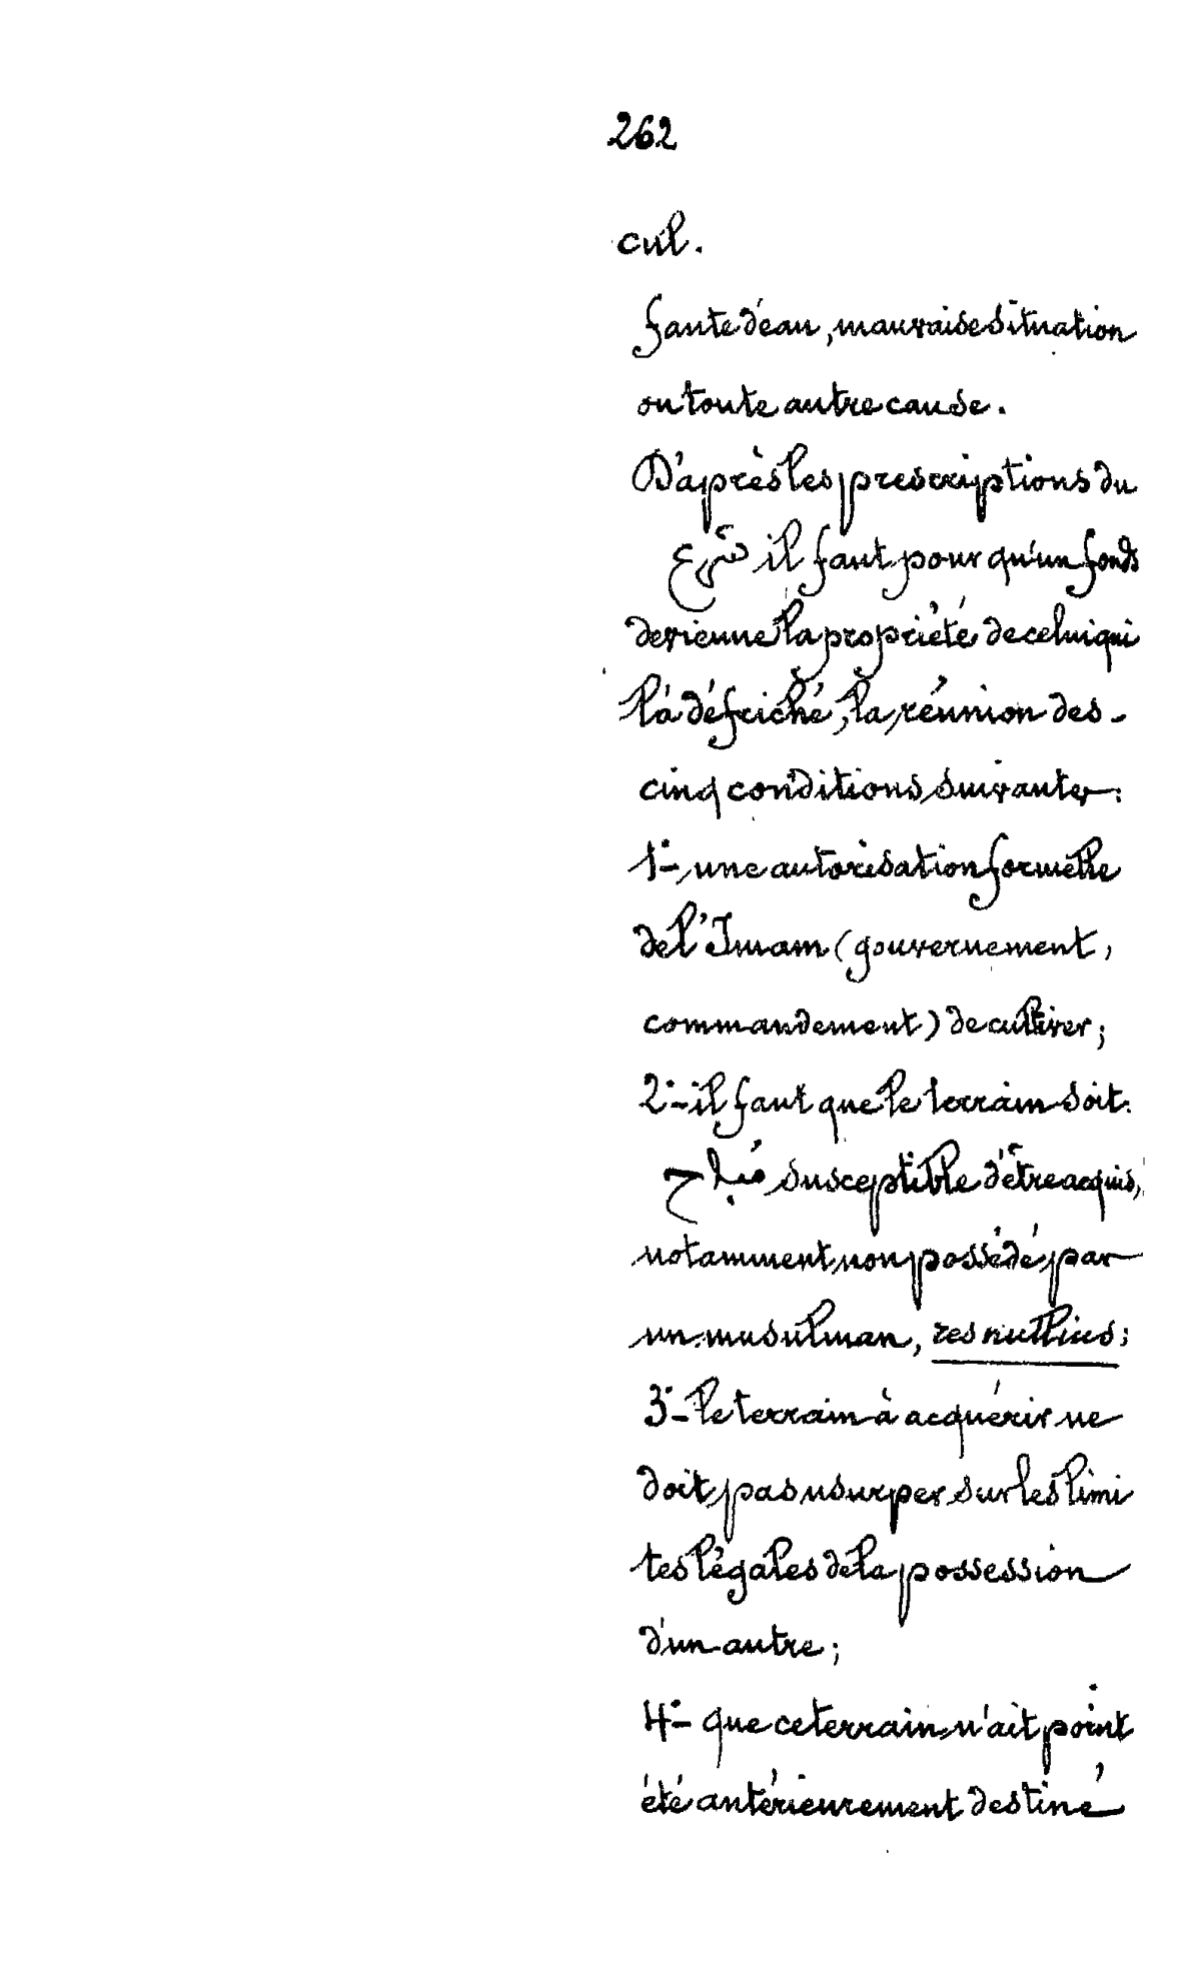 262
cul.
faute d'eau, mauvaise situation
ou toute autre cause.
D'après les prescriptions du
شرع il faut pour qu'un fonds
devienne la propriété de celui qui
l'a défriché, la réunion des -
cinq conditions suivantes :
1°- une autorisation formelle
de l'Imam (gouvernement,
commandement) de cultiver;
2°- il faut que le terrain soit
مباح susceptible d'être acquis,
notamment non possédé par
un musulman, res nullius;
3°- le terrain à acquérir ne
doit pas usurper sur les limi
tes légales de la possession
d'un autre;
4°- que ce terrain n'ait point
été antérieurement destiné